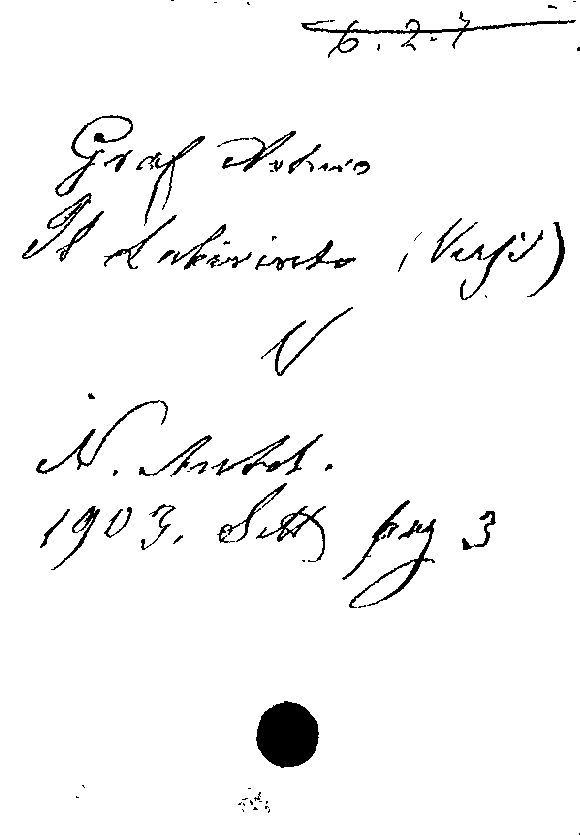 6.2.7
Graf Arturo
Il Labirinto (Versi)
V
N. Antol.
1903. Sett pag 3